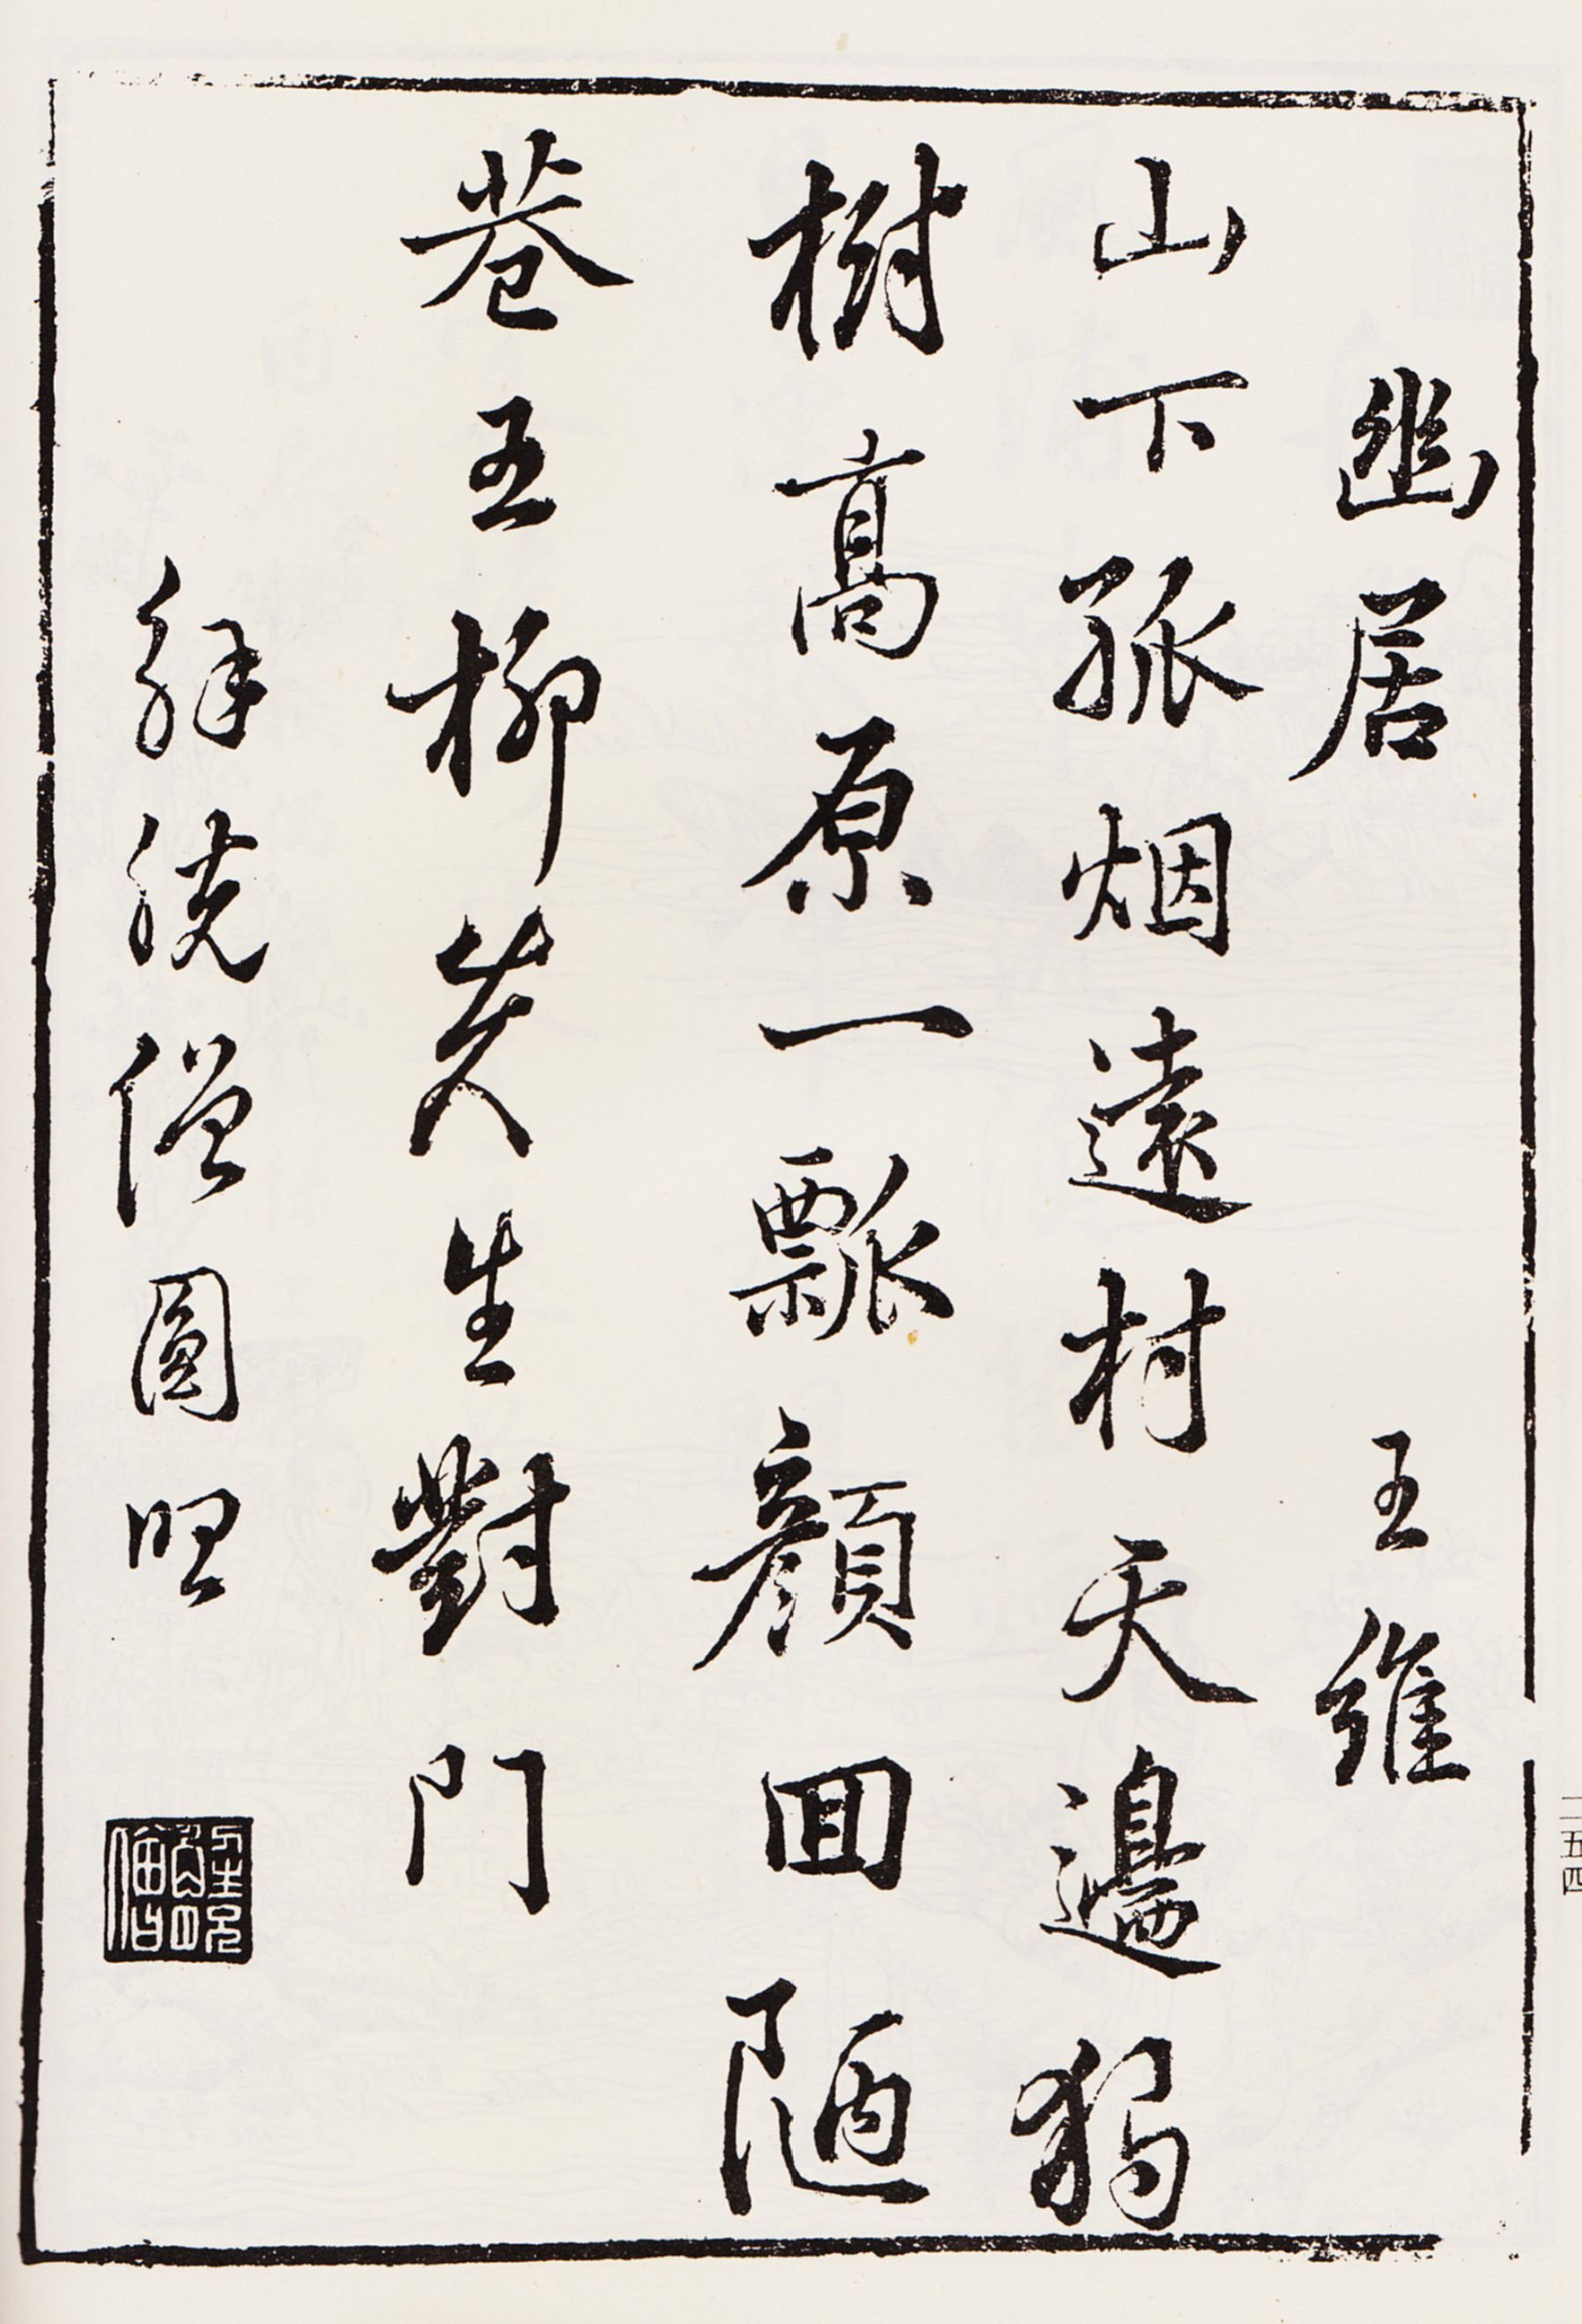 幽居 王維
山下孤烟遠村天邊獨
樹高原一瓢顏回陋
巷五柳先生對門
解脫僧圓昭
二五四